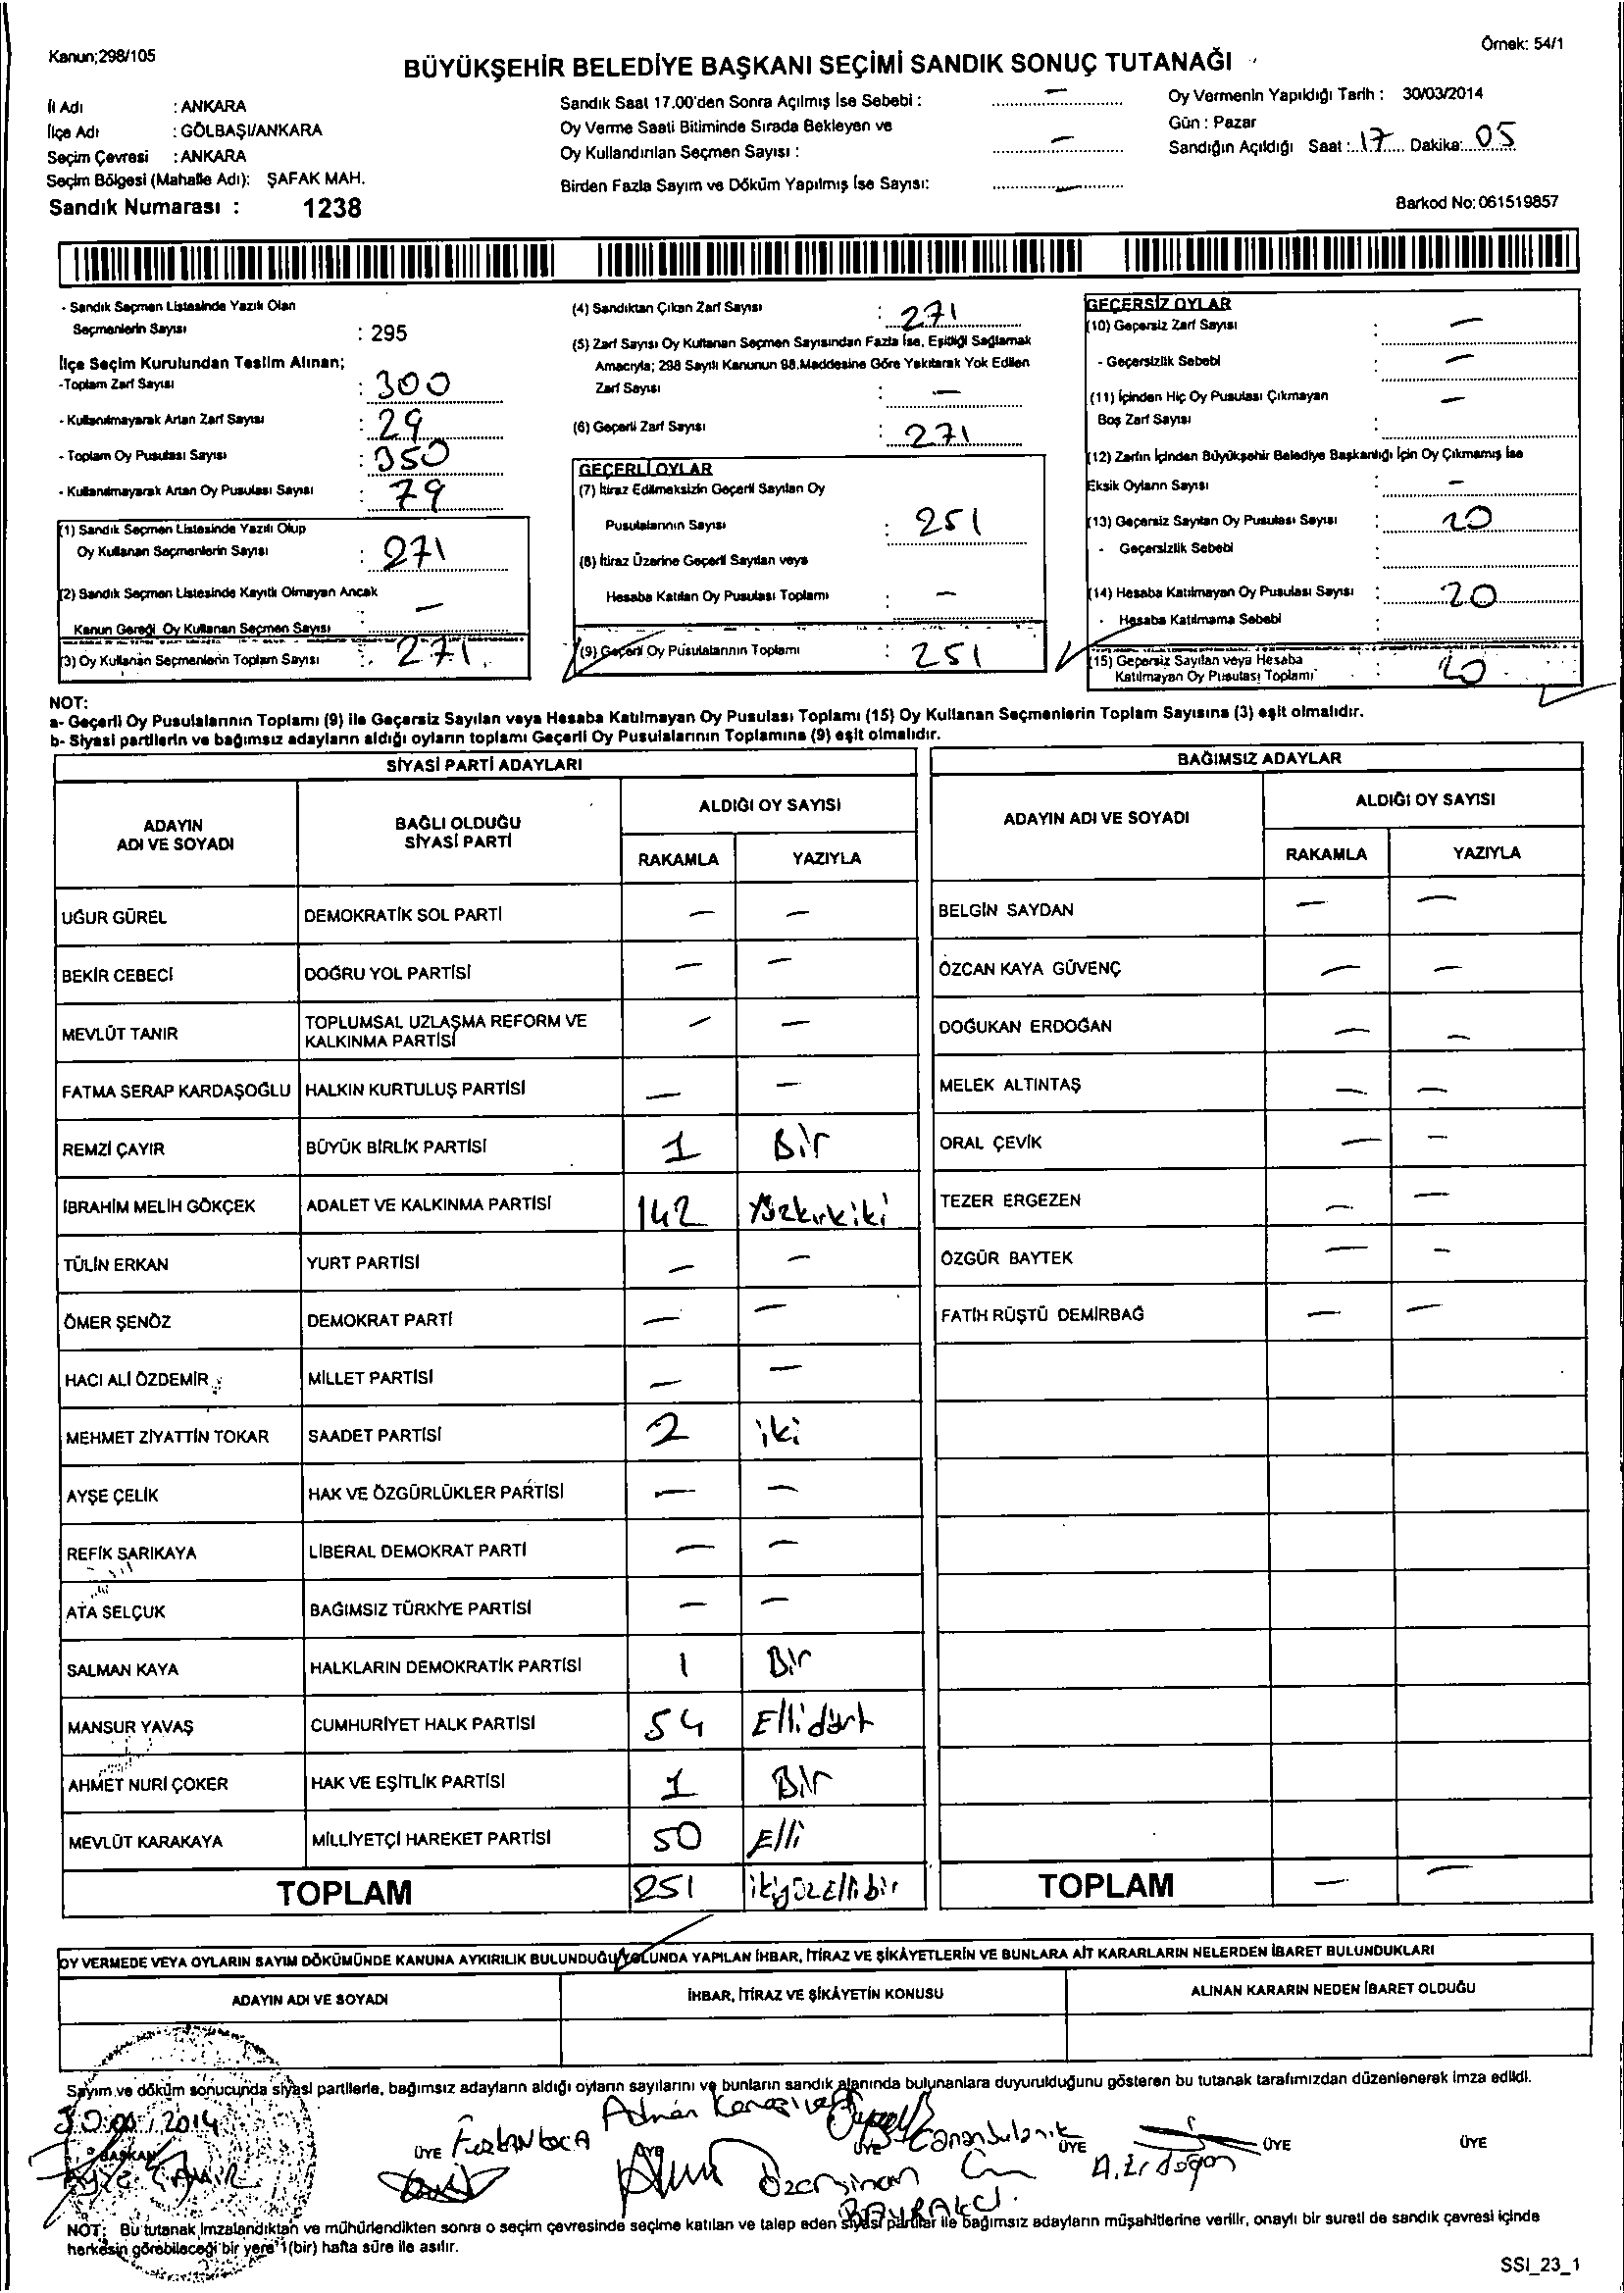 Kanun;298/105
Örnek: 54/1
BÜYÜKŞEHİR BELEDİYE BAŞKANI SEÇİMİ SANDIK SONUÇ TUTANAĞI
İl Adı : ANKARA
İlçe Adı : GÖLBAŞI/ANKARA
Seçim Çevresi : ANKARA
Seçim Bölgesi (Mahalle Adı): ŞAFAK MAH.
Sandık Numarası : 1238
Sandık Saat 17.00'den Sonra Açılmış İse Sebebi : —
Oy Verme Saati Bitiminde Sırada Bekleyen ve
Oy Kullandırılan Seçmen Sayısı : —
Birden Fazla Sayım ve Döküm Yapılmış İse Sayısı: —
Oy Vermenin Yapıldığı Tarih : 30/03/2014
Gün : Pazar
Sandığın Açıldığı Saat : 17 Dakika: 05
Barkod No: 061519857
- Sandık Seçmen Listesinde Yazılı Olan
Seçmenlerin Sayısı : 295
İlçe Seçim Kurulundan Teslim Alınan;
-Toplam Zarf Sayısı : 300
- Kullanılmayarak Artan Zarf Sayısı : 29
- Toplam Oy Pusulası Sayısı : 350
- Kullanılmayarak Artan Oy Pusulası Sayısı : 79
(1) Sandık Seçmen Listesinde Yazılı Olup
Oy Kullanan Seçmenlerin Sayısı : 271
(2) Sandık Seçmen Listesinde Kayıtlı Olmayan Ancak
Kanun Gereği Oy Kullanan Seçmen Sayısı : —
(3) Oy Kullanan Seçmenlerin Toplam Sayısı : 271
(4) Sandıktan Çıkan Zarf Sayısı : 271
(5) Zarf Sayısı Oy Kullanan Seçmen Sayısından Fazla İse, Eşitliği Sağlamak
Amacıyla; 298 Sayılı Kanunun 98.Maddesine Göre Yakılarak Yok Edilen
Zarf Sayısı : —
(6) Geçerli Zarf Sayısı : 271
GEÇERLİ OYLAR
(7) İtiraz Edilmeksizin Geçerli Sayılan Oy
Pusulalarının Sayısı : 251
(8) İtiraz Üzerine Geçerli Sayılan veya
Hesaba Katılan Oy Pusulası Toplamı : —
(9) Geçerli Oy Pusulalarının Toplamı : 251
GEÇERSİZ OYLAR
(10) Geçersiz Zarf Sayısı : —
- Geçersizlik Sebebi : —
(11) İçinden Hiç Oy Pusulası Çıkmayan
Boş Zarf Sayısı : —
(12) Zarfın İçinden Büyükşehir Belediye Başkanlığı İçin Oy Çıkmamış İse
Eksik Oyların Sayısı : —
(13) Geçersiz Sayılan Oy Pusulası Sayısı : 20
- Geçersizlik Sebebi :
(14) Hesaba Katılmayan Oy Pusulası Sayısı : 20
- Hesaba Katılmama Sebebi
(15) Geçersiz Sayılan veya Hesaba
Katılmayan Oy Pusulası Toplamı : 20
NOT:
a- Geçerli Oy Pusulalarının Toplamı (9) ile Geçersiz Sayılan veya Hesaba Katılmayan Oy Pusulası Toplamı (15) Oy Kullanan Seçmenlerin Toplam Sayısına (3) eşit olmalıdır.
b- Siyasi partilerin ve bağımsız adayların aldığı oyların toplamı Geçerli Oy Pusulalarının Toplamına (9) eşit olmalıdır.
SİYASİ PARTİ ADAYLARI
ADAYIN ADI VE SOYADI BAĞLI OLDUĞU SİYASİ PARTİ ALDIĞI OY SAYISI
RAKAMLA YAZIYLA
UĞUR GÜREL DEMOKRATİK SOL PARTİ — —
BEKİR CEBECİ DOĞRU YOL PARTİSİ — —
MEVLÜT TANIR TOPLUMSAL UZLAŞMA REFORM VE KALKINMA PARTİSİ — —
FATMA SERAP KARDAŞOĞLU HALKIN KURTULUŞ PARTİSİ — —
REMZİ ÇAYIR BÜYÜK BİRLİK PARTİSİ 1 Bir
İBRAHİM MELİH GÖKÇEK ADALET VE KALKINMA PARTİSİ 142 Yüzkırkiki
TÜLİN ERKAN YURT PARTİSİ — —
ÖMER ŞENÖZ DEMOKRAT PARTİ — —
HACI ALİ ÖZDEMİR MİLLET PARTİSİ — —
MEHMET ZİYATTİN TOKAR SAADET PARTİSİ 2 iki
AYŞE ÇELİK HAK VE ÖZGÜRLÜKLER PARTİSİ — —
REFİK SARIKAYA LİBERAL DEMOKRAT PARTİ — —
ATA SELÇUK BAĞIMSIZ TÜRKİYE PARTİSİ — —
SALMAN KAYA HALKLARIN DEMOKRATİK PARTİSİ 1 Bir
MANSUR YAVAŞ CUMHURİYET HALK PARTİSİ 54 Ellidört
AHMET NURİ ÇOKER HAK VE EŞİTLİK PARTİSİ 1 Bir
MEVLÜT KARAKAYA MİLLİYETÇİ HAREKET PARTİSİ 50 Elli
TOPLAM 251 ikiyüzellibir
BAĞIMSIZ ADAYLAR
ADAYIN ADI VE SOYADI ALDIĞI OY SAYISI
RAKAMLA YAZIYLA
BELGİN SAYDAN — —
ÖZCAN KAYA GÜVENÇ — —
DOĞUKAN ERDOĞAN — —
MELEK ALTINTAŞ — —
ORAL ÇEVİK — —
TEZER ERGEZEN — —
ÖZGÜR BAYTEK — —
FATİH RÜŞTÜ DEMİRBAĞ — —
TOPLAM — —
OY VERMEDE VEYA OYLARIN SAYIM DÖKÜMÜNDE KANUNA AYKIRILIK BULUNDUĞU YOLUNDA YAPILAN İHBAR, İTİRAZ VE ŞİKÂYETLERİN VE BUNLARA AİT KARARLARIN NELERDEN İBARET BULUNDUKLARI
ADAYIN ADI VE SOYADI İHBAR, İTİRAZ VE ŞİKÂYETİN KONUSU ALINAN KARARIN NEDEN İBARET OLDUĞU
Sayım ve döküm sonucunda siyasi partilerle, bağımsız adayların aldığı oyların sayılarını ve bunların sandık alanında bulunanlara duyurulduğunu gösteren bu tutanak tarafımızdan düzenlenerek imza edildi.
2014
Adnan
BAŞKAN ÜYE ÜYE ÜYE ÜYE ÜYE ÜYE
A. Erdoğan
BAYRAKCI
NOT: Bu tutanak imzalandıktan ve mühürlendikten sonra o seçim çevresinde seçime katılan ve talep eden siyasi partiler ile bağımsız adayların müşahitlerine verilir, onaylı bir sureti de sandık çevresi içinde
herkesin görebileceği bir yere 1(bir) hafta süre ile asılır.
SSI_23_1